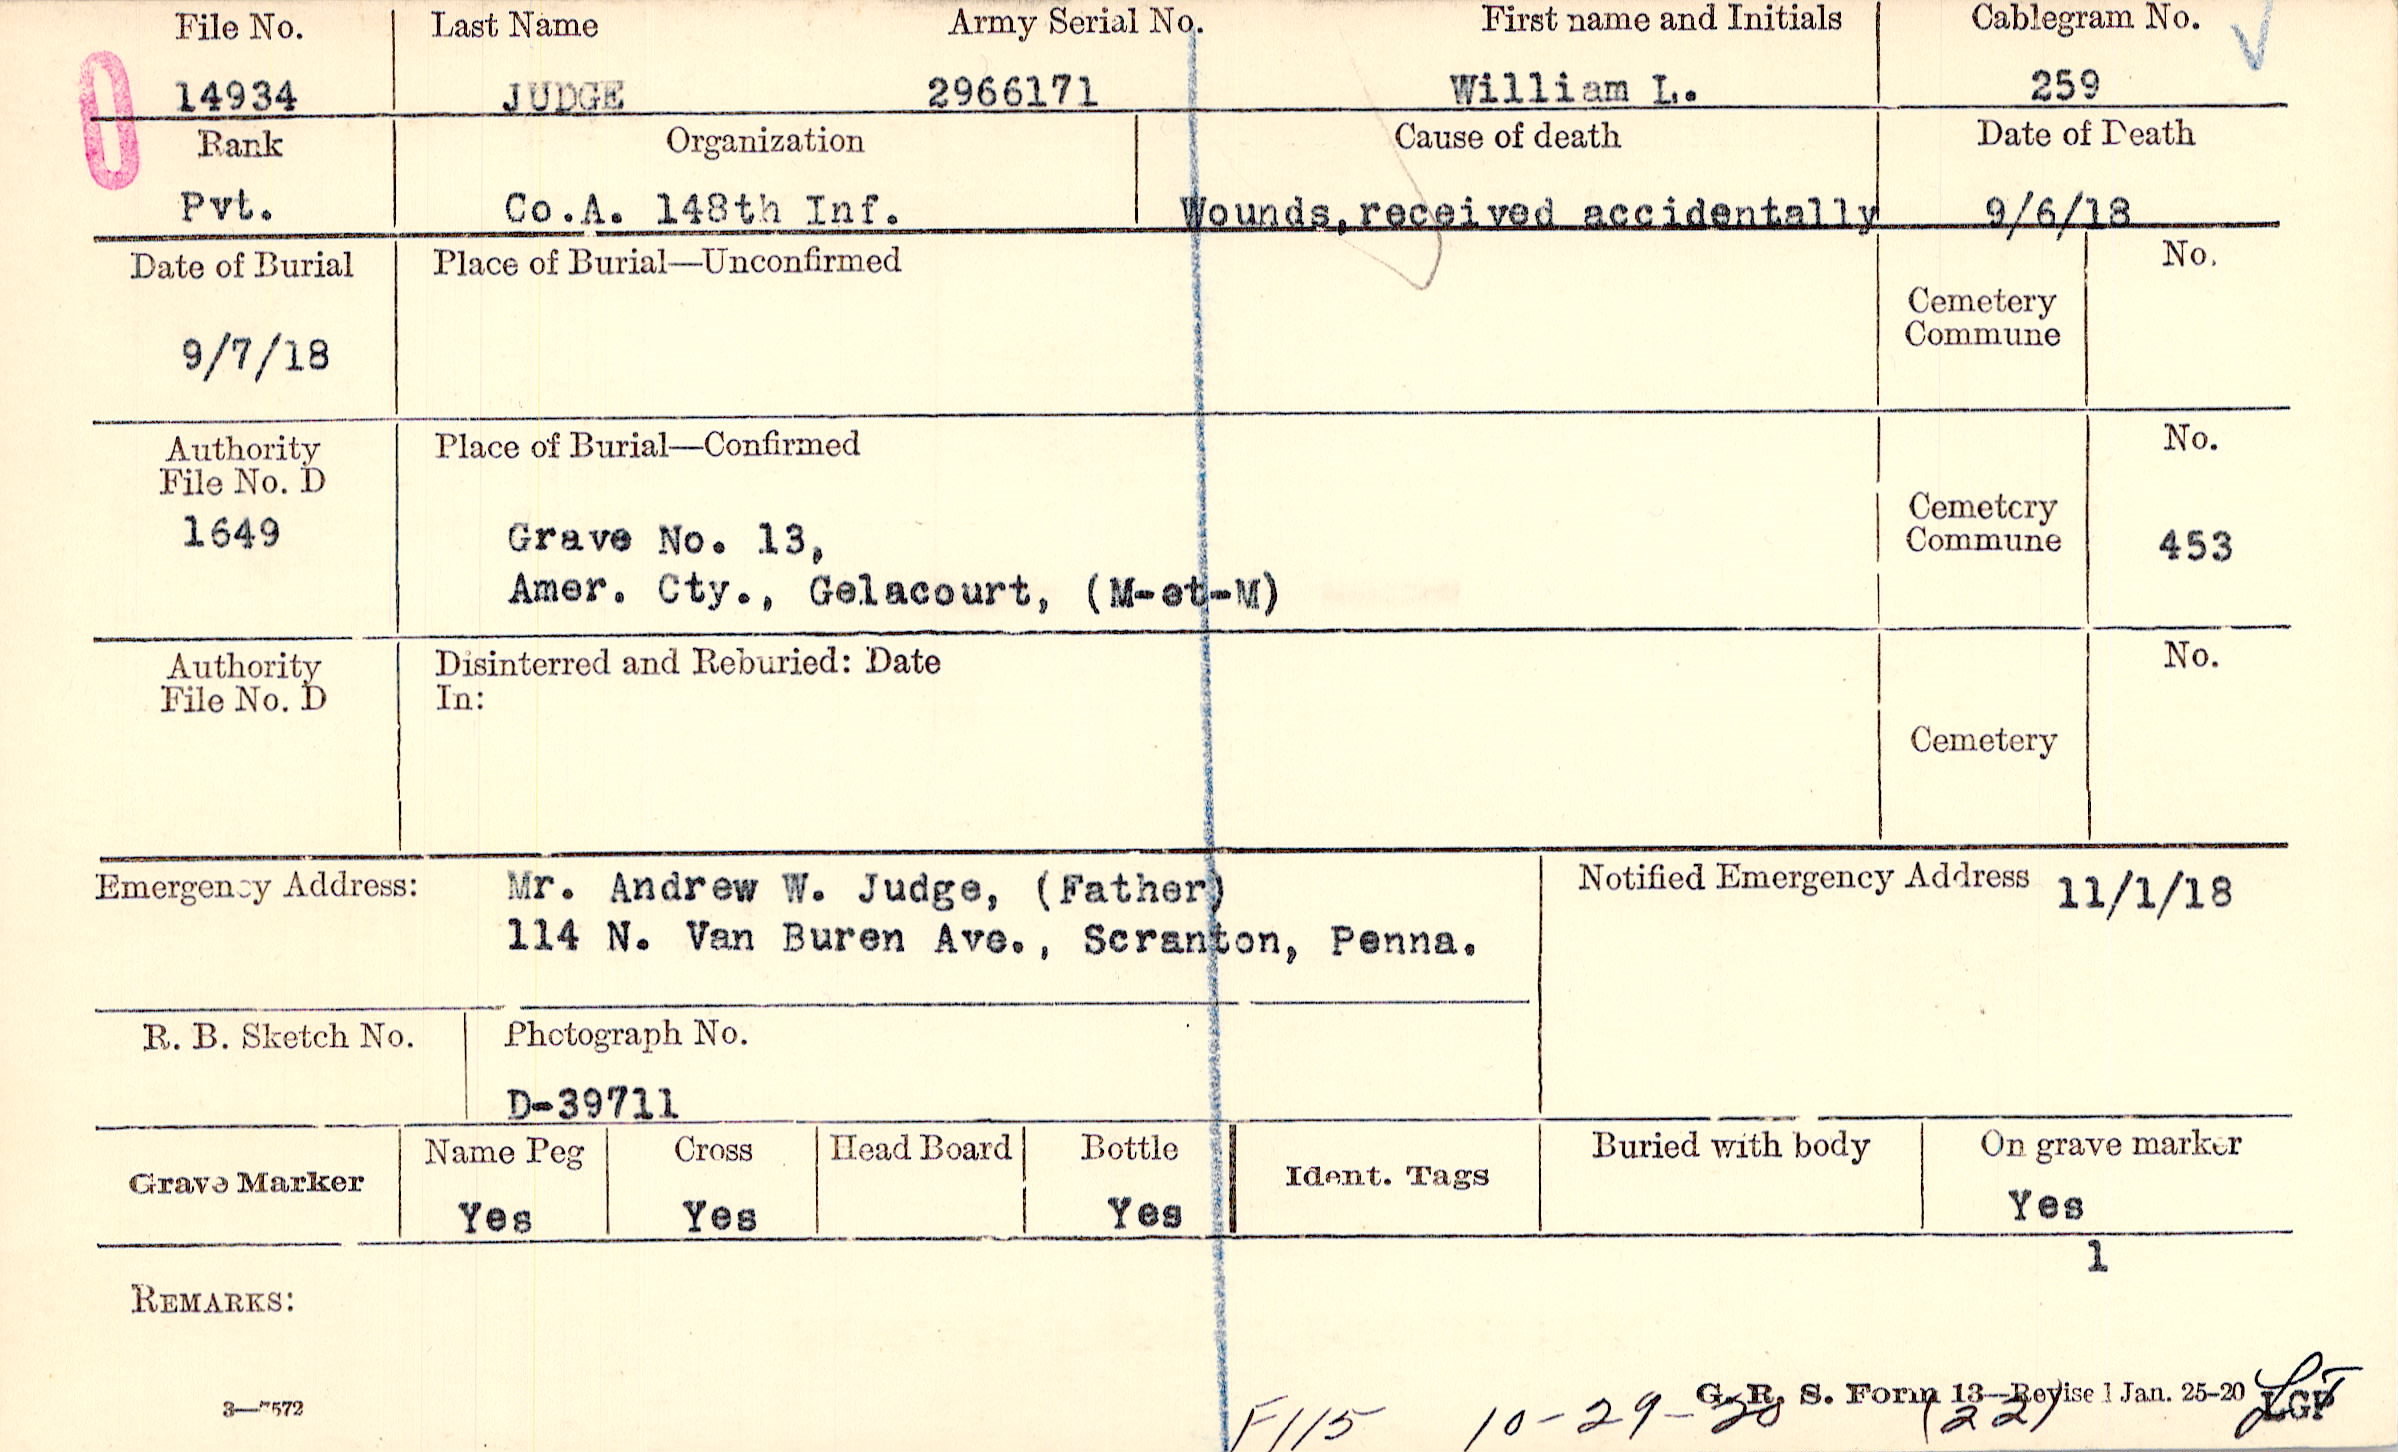 File No. Last Name Army Serial No. First name and Initials Cablegram No.
14934 JUDGE 2966171 William L. 259
Rank Organization Cause of death Date of Death
Pvt. Co.A. 148th Inf. Wounds,received accidentally 9/6/18
Date of Burial Place of Burial—Unconfirmed No.
Cemetery
Commune
9/7/18
Authority Place of Burial—Confirmed No.
File No. D
1649 Grave No. 13, Cemetery
Commune 453
Amer. Cty., Gelacourt, (M-et-M)
Authority Disinterred and Reburied: Date No.
File No. D In:
Cemetery
Emergency Address: Mr. Andrew W. Judge, (Father) Notified Emergency Address 11/1/18
114 N. Van Buren Ave., Scranton, Penna.
R. B. Sketch No. Photograph No.
D-39711
Grave Marker Name Peg Cross Head Board Bottle Ident. Tags Buried with body On grave marker
Yes Yes Yes Yes
1
REMARKS:
3—7572 G. R. S. Form 13—Revised Jan. 25-20 LGF
F115 10-29-20 (22)